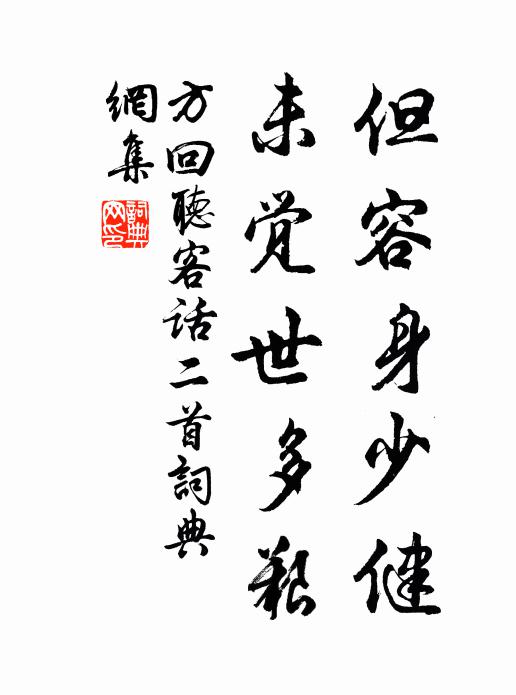 但容身少健
未觉世多艱
方回聽客话二首詞典
網集
詞典網印